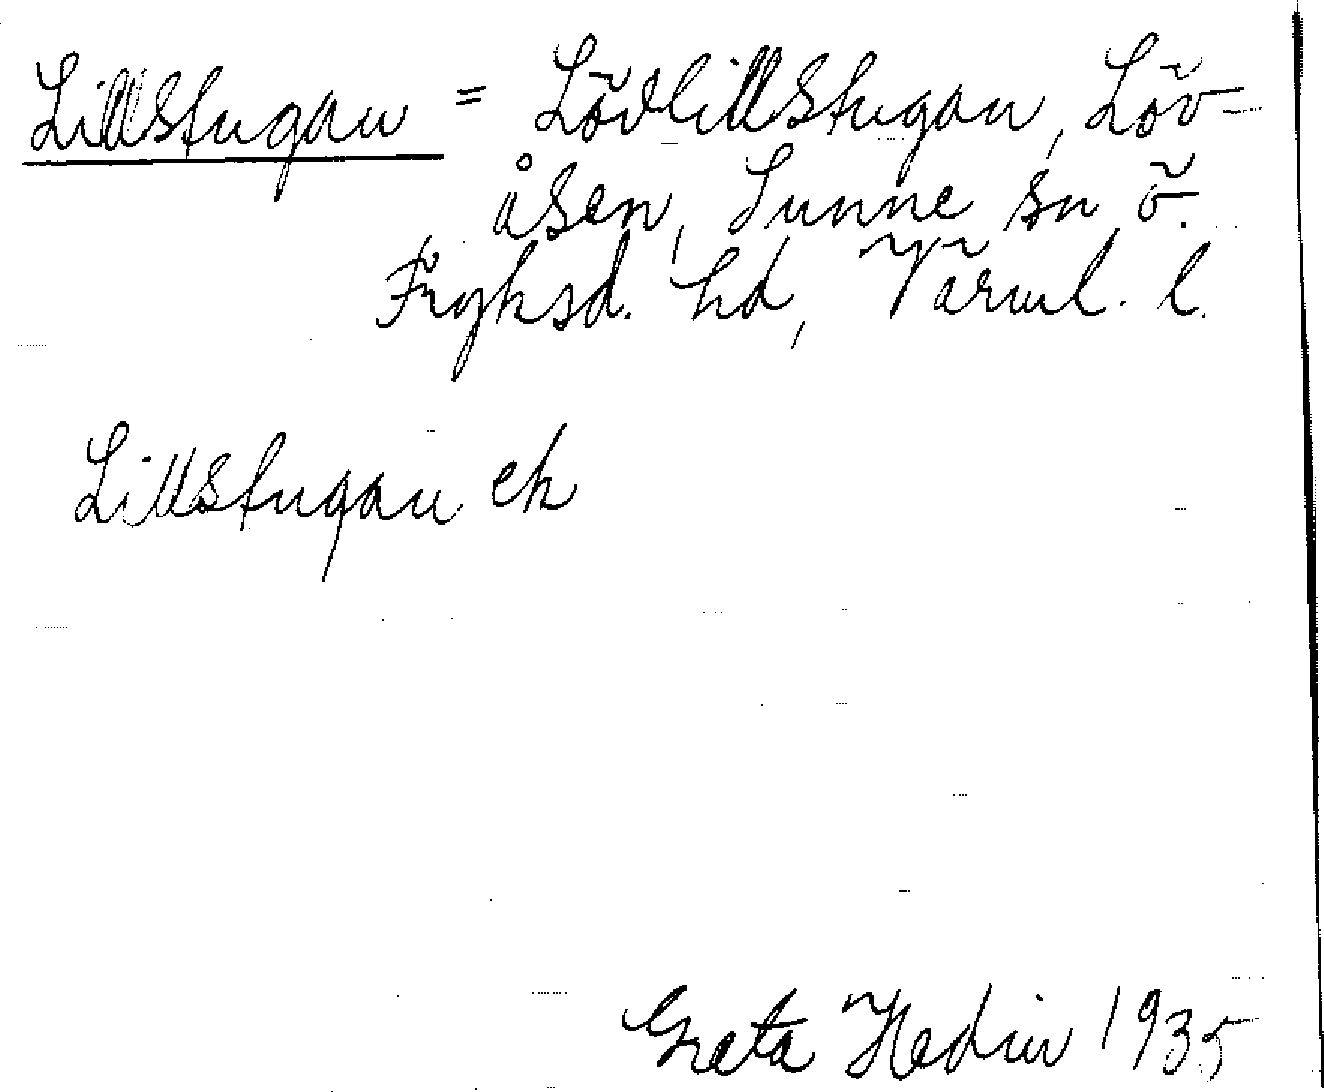 Lillstugan = Lövlillstugan, Löv-
åsen, Sunne sn Ö.
Fryksd. hd, Värml. l.
Lillstugan ek
Greta Hedin 1935